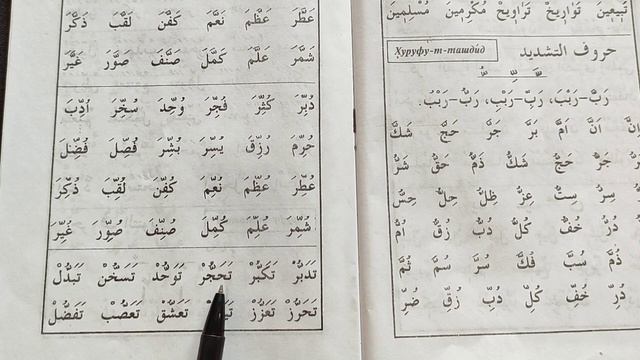 عَطَّرَ عَظَّمَ نَعَّمَ كَفَّنَ لَقَّبَ ذَكَّرَ
شَمَّرَ عَلَّمَ كَمَّلَ صَنَّفَ صَوَّرَ غَيَّرَ
دُبِّرَ كُثِّرَ فُجِّرَ وُحِّدَ سُخِّرَ اُدِّبَ
حُرِّمَ رُزِّقَ يُسِّرَ بُشِّرَ فُصِّلَ فُضِّلَ
عُطِّرَ عُظِّمَ نُعِّمَ كُفِّنَ لُقِّبَ ذُكِّرَ
شُمِّرَ عُلِّمَ كُمِّلَ صُنِّفَ صُوِّرَ غُيِّرَ
تَدَبُّرْ تَكَبُّرْ تَحَجُّرْ تَوَحُّدْ تَسَخُّنْ تَبَدُّلْ
تَحَرُّزْ تَعَزُّزْ تَعَشُّقْ تَعَصُّبْ تَفَضُّلْ
تَبِيعِينَ تَوَارِيخْ تَرَاوِيحْ مُكْرِمِينَ مُسْلِمِينَ
حروف التشديد Ҳуруфу-т-ташдӣд
رَبَّ-رَبْبَ، رَبِّ-رَبْبِ، رَبُّ-رَبْبُ.
اِنَّ اَنَّ اَمَّ بَرَّ جَرَّ حَجَّ شَكَّ
جَرُّ حَجُّ شَكُّ ذَمُّ حَقُّ شَرُّ
سِرُّ سِتُّ عِزُّ ظِلُّ حِلُّ حِسُّ
دُرُّ خُفُّ كُلُّ دُبُّ زُقُّ اُمُّ
ذُمَّ سُبَّ فُكَّ سُرَّ سُمَّ ثُمَّ
دُرِّ خُفِّ كُلِّ دُبِّ زُقِّ ضُرِّ